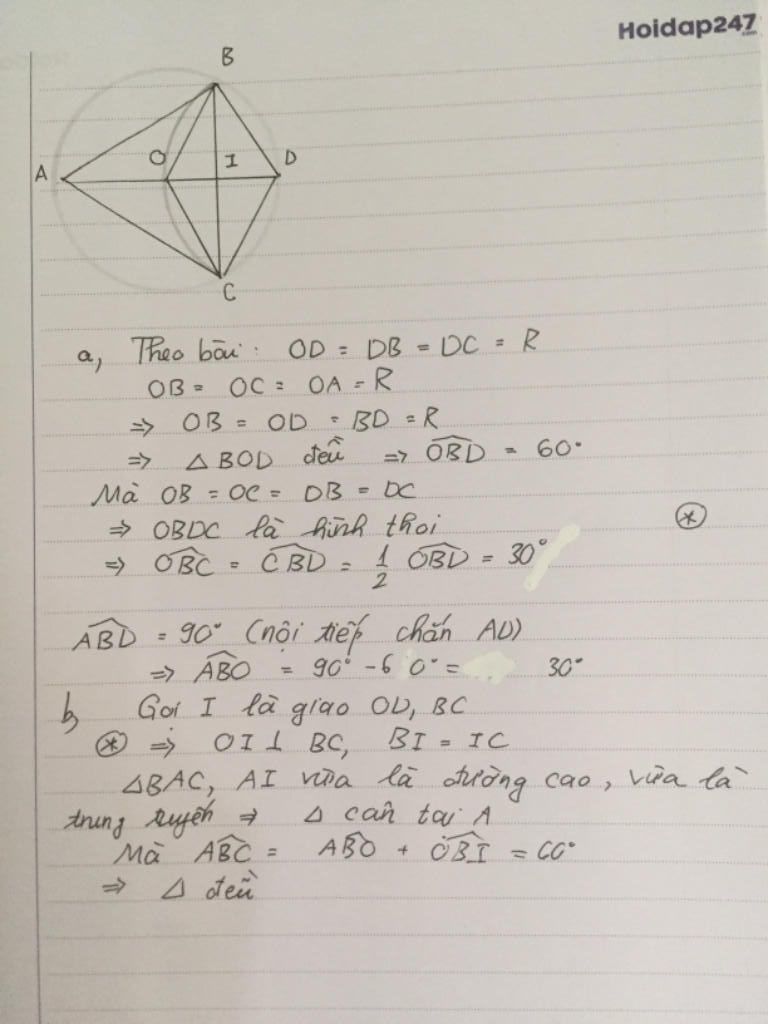 Hoidap247
.com
B
A
O
I
D
C
a, Theo bài: OD = DB = DC = R
OB = OC = OA = R
=> OB = OD = BD = R
=> △ BOD đều => \widehat{OBD} = 60°
Mà OB = OC = DB = DC
=> OBDC là hình thoi (*)
=> \widehat{OBC} = \widehat{CBD} = 1/2 \widehat{OBD} = 30°
\widehat{ABD} = 90° (nội tiếp chắn AD)
=> \widehat{ABO} = 90° - 60° = 30°
b, Gọi I là giao OD, BC
(*) => OI ⊥ BC, BI = IC
△BAC, AI vừa là đường cao, vừa là
trung tuyến => △ cân tại A
Mà \widehat{ABC} = \widehat{ABO} + \widehat{OBI} = 60°
=> △ đều